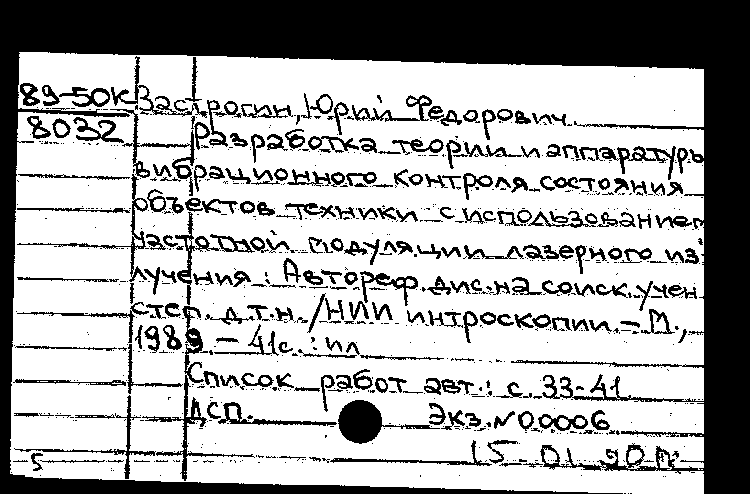 89-50к Застрогин, Юрий Федорович.
8032 Разработка теории и аппаратуры
вибрационного контроля состояния
объектов техники с использованием
частотной модуляции лазерного из-
лучения : Автореф. дис. на соиск. учен.
степ. д.т.н. /НИИ интроскопии. – М.,
1989. – 41с. : ил
Список работ авт.: с. 33-41
ДСП. Экз. N00006
15-01 90
5